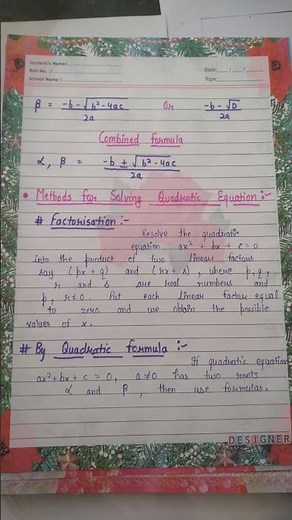 Student's Name:
Roll No. :
School Name :
Date:
Topic
β = -b - √b² - 4ac / 2a Or -b - √D / 2a
Combined formula
α, β = -b ± √b² - 4ac / 2a
• Methods for Solving Quadratic Equation :-
# Factorisation :-
Resolve the quadratic
equation ax² + bx + c = 0
into the product of two linear factors
say (px + q) and (rx + s), where p, q,
r and s are real numbers and
p, r ≠ 0. Put each linear factor equal
to zero and we obtain the possible
values of x.
# By Quadratic formula :-
If quadratic equation
ax² + bx + c = 0, a ≠ 0 has two roots
α and β, then use formulas.
DESIGNER